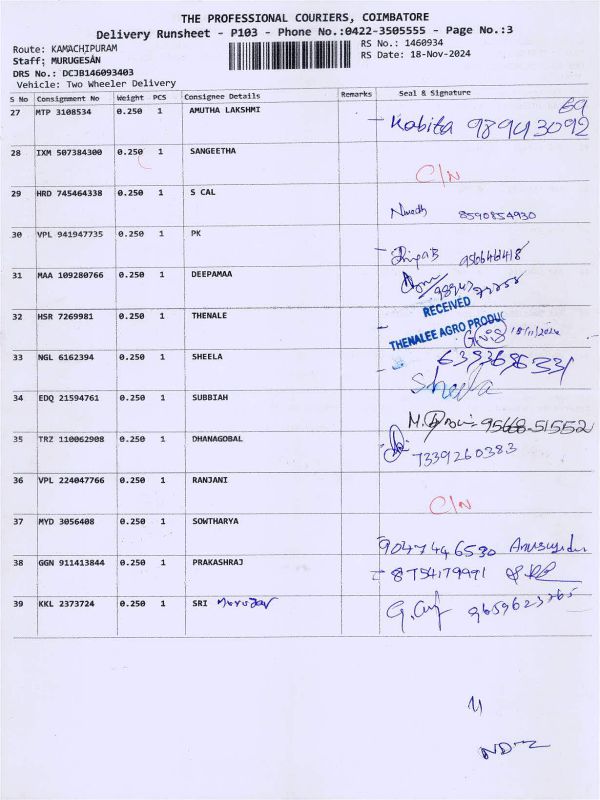 THE PROFESSIONAL COURIERS, COIMBATORE
Delivery Runsheet - P103 - Phone No.:0422-3505555 - Page No.:3
Route: KAMACHIPURAM RS No.: 1460934
Staff: MURUGESAN RS Date: 18-Nov-2024
DRS No.: DCJB146093403
Vehicle: Two Wheeler Delivery
S No Consignment No Weight PCS Consignee Details Remarks Seal & Signature
27 MTP 3108534 0.250 1 AMUTHA LAKSHMI
69
Kabita 98943092
28 IXM 507384300 0.250 1 SANGEETHA
C/N
29 HRD 745464338 0.250 1 S CAL
8590854930
30 VPL 941947735 0.250 1 PK
956646418
31 MAA 109280766 0.250 1 DEEPAMAA
32 HSR 7269981 0.250 1 THENALE
RECEIVED
THENALEE AGRO PRODUC
18/11/2024
33 NGL 6162394 0.250 1 SHEELA
Sheela
34 EDQ 21594761 0.250 1 SUBBIAH
51552
35 TRZ 110062908 0.250 1 DHANAGOBAL
7339260383
36 VPL 224047766 0.250 1 RANJANI
C/N
37 MYD 3056408 0.250 1 SOWTHARYA
9047446530
38 GGN 911413844 0.250 1 PRAKASHRAJ
8754179991
39 KKL 2373724 0.250 1 SRI
11
ND-2